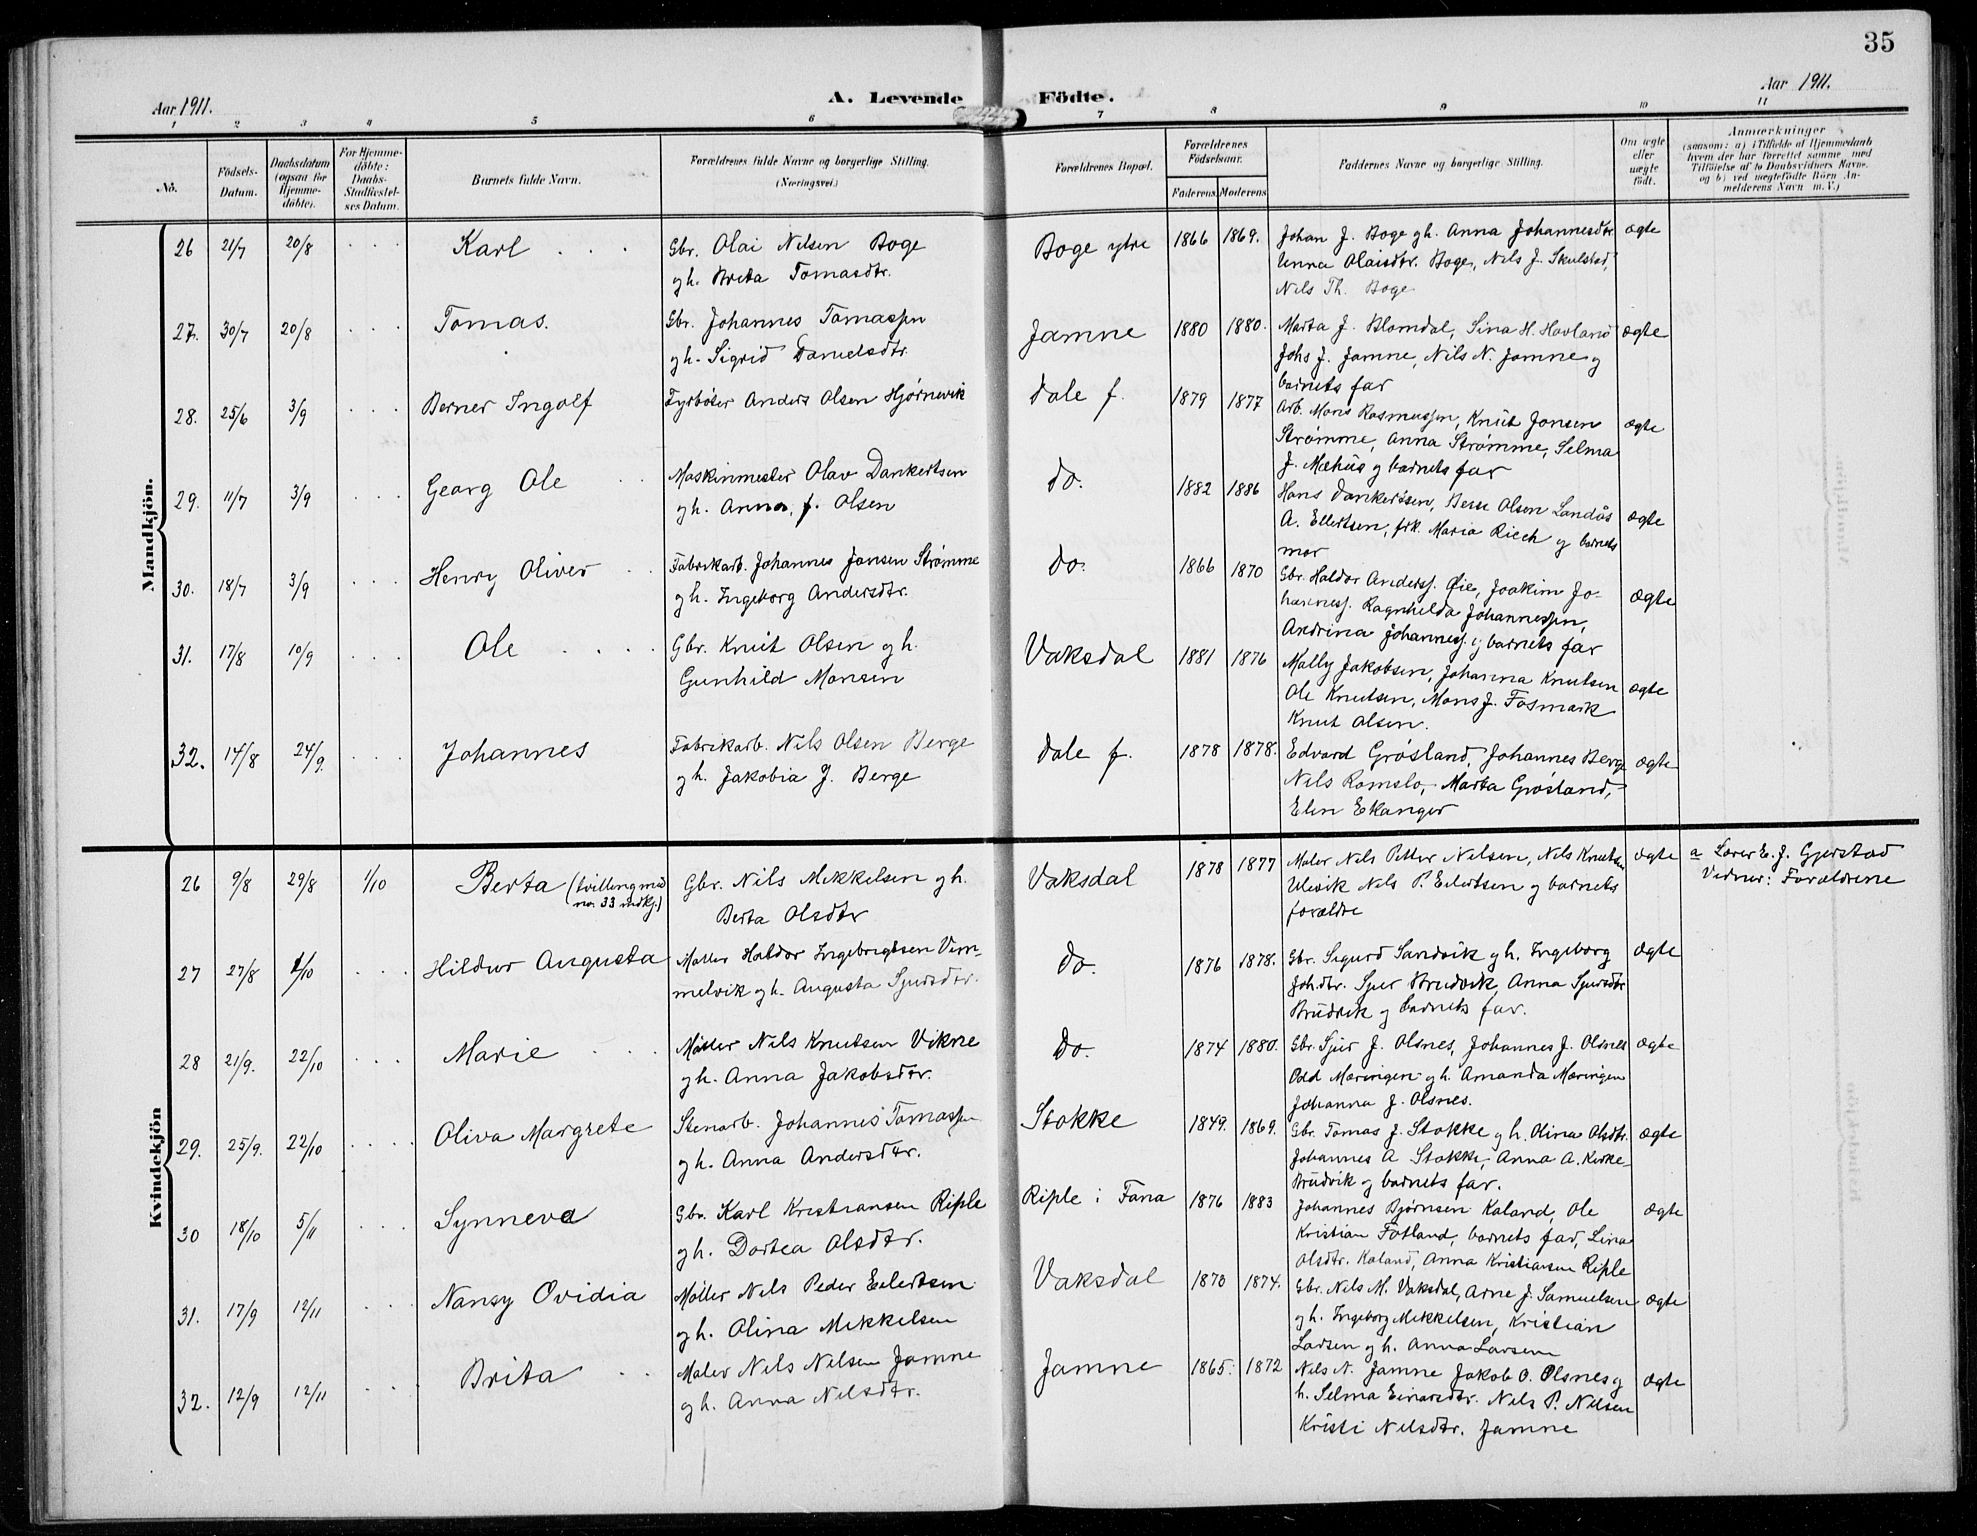 35
Aar 1911.
A. Levende Födte.
Aar 1911.
1 2 3 4 5 6 7 8 9 10 11
No.
Födsels-Datum.
Daabsdatum (ogsaa for Hjemme-döbte).
For Hjemme-döbte: Daabs-Stadfæstel-ses Datum.
Barnets fulde Navn.
Forældrenes fulde Navne og borgerlige Stilling. (Næringsvei.)
Forældrenes Bopæl.
Forældrenes Födselsaar.
Faderens Moderens
Faddernes Navne og borgerlige Stilling.
Om ægte eller uægte født.
Anmærkninger
(saasom: a) i Tilfælde af Hjemmedaab
hvem der har forrettet samme med
Tilföielse af to Daabsvidners Navne.
og b) ved uægtefödte Börn An-
melderens Navn m. V.)
Mandkjön.
26 21/7 20/8 Karl
Gbr. Olai Nilsen Boge
gh. Brita Tomasdtr.
Boge ytre 1866 1869.
Johan J. Boge gh. Anna Johannesdtr. ægte
Unna Olaisdtr. Boge, Nils J. Skulstad,
Nils Th. Boge
27. 30/7 20/8 Tomas.
Gbr. Johannes Tomassen
gh. Sigrid Danielsdtr.
Jamne 1880 1880.
Marta J. Blomdal, Sina H. Hovland ægte
Johs J. Jamne, Nils N. Jamne og
barnets far
28. 25/6 3/9 Berner Ingolf
Fyrböter Anders Olsen Hjørnevik
Dale f. 1879 1877
Arb. Mons Rasmussen, Knut Jonsen ægte
Strømme, Anna Strømme, Selma
J. Mæhus og barnets far
29. 11/7 3/9 Georg Ole
Maskinmester Olav Dankertsen
gh. Anna, f. Olsen
do. 1882 1886
Hans Dankertsen, Olsen Landås ægte
A. Ellertsen, frk. Maria Riech og barnets
mor
30. 18/7 3/9 Henry Oliver
Fabrikarb. Johannes Jonsen Strømme
gh. Ingeborg Andersdtr.
do. 1866 1870
Gbr. Haldor Anderss. Øie, Joakim Jo- ægte
hanness. Ragnhilda Johannessen,
Andrina Johanness. og barnets far
31. 17/8 10/9 Ole
Gbr. Knut Olsen gh.
Gunhild Monsen
Vaksdal 1881 1876
Mally Jakobsen, Johanna Knutsen ægte
Ole Knutsen, Mons J. Fosmark
Knut Olsen.
32. 14/8 24/9. Johannes
Fabrikarb. Nils Olsen Berge
gh. Jakobia J. Berge
Dale f. 1878 1878.
Edvard Grøsland, Johannes Berge ægte
Nils Romslo, Marta Grøsland,
Elen Ekanger
Kvindekjön
26 9/8 29/8 1/10 Berta (tvilling med
no. 33 mdkj.)
Gbr. Nils Mikkelsen gh.
Berta Olsdtr
Vaksdal 1878 1877
Maler Nils Petter Nilsen, Nils Knutsen ægte
Ulevik Nils P. Eilertsen og barnets
forældre
a Lærer E. J. Gjerstad
Vidner: Forældrene
27 27/8 1/10 Hildur Augusta
Møller Haldor Ingebrigtsen Vem-
melvik gh. Augusta Sjursdtr.
do. 1876 1878.
Gbr. Sigurd Sandvik gh. Ingeborg ægte
Joh.dtr. Sjur Brudvik, Anna Sjursdtr
Brudvik og barnets far.
28 21/9. 22/10 Marie
Møller Nils Knutsen Vikne
gh. Anna Jakobsdtr.
do. 1874 1880.
Gbr. Sjur J. Olsnes, Johannes J. Olsnes ægte
Odd Moringen gh. Amanda Moringen
Johanna J. Olsnes.
29. 25/9. 22/10 Oliva Margrete
Stenarb. Johannes Tomassen
gh. Anna Andersdtr.
Stokke 1849. 1869.
Gbr. Tomas J. Stokke gh. Olina Olsdtr. ægte
Johannes A Stokke, Anna A. Kirke-
Brudvik og barnets far.
30 18/10 5/11 Synneva
Gbr. Karl Kristiansen Riple
gh. Dortea Olsdtr.
Riple i Fana 1876 1883
Johannes Bjørnsen Kaland, Ole ægte
Kristian Fotland, barnets far, Lina
Olsdtr. Kaland, Anna Kristiansen Riple
31. 17/9 12/11 Nansy Ovidia
Møller Nils Peder Eilertsen
gh. Olina Mikkelsen
Vaksdal 1870 1874.
Gbr. Nils M. Vaksdal, Arne J. Samuelsen ægte
gh. Ingeborg Mikkelsen, Kristian
Larsen gh. Anna Larsen
32. 12/9 12/11 Brita
Maler Nils Nilsen Jamne
gh. Anna Nilsdtr.
Jamne 1865. 1872
Nils N. Jamne Jakob O. Olsnes g ægte
h. Selma Einarsdtr. Nils P. Nilsen
Kristi Nilsdtr. Jamne